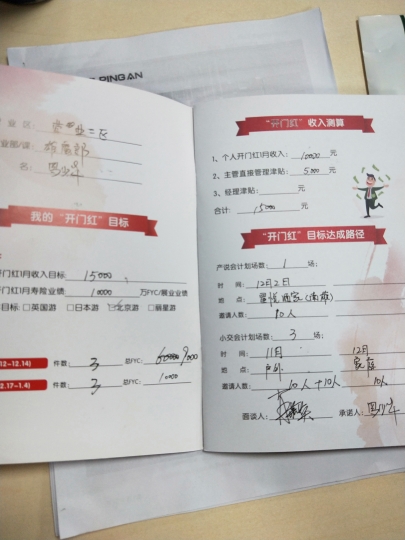 PING AN
业 区：
业部/课：
名：
我的“开门红”目标
开门红1月收入目标：15000
开门红1月寿险业绩 10000 万FYC/展业业绩
目标：□英国游 □日本游 ☑北京游 □丽星游
12-12.14) 件数：3 总FYC：9000
2.17-1.4) 件数：3 总FYC：10000
“开门红”收入测算
1、个人开门红1月收入：10000 元
2、主管直接管理津贴：5000 元
3、经理津贴： 元
合计：15000 元
“开门红”目标达成路径
产说会计划场数：1 场；
时 间：12月2日
地 点：
邀请人数：10人
小交会计划场数：3 场；
时 间：11月 12月
地 点：户外 家庭
邀请人数：10人+10人 10人
面谈人： 承诺人：